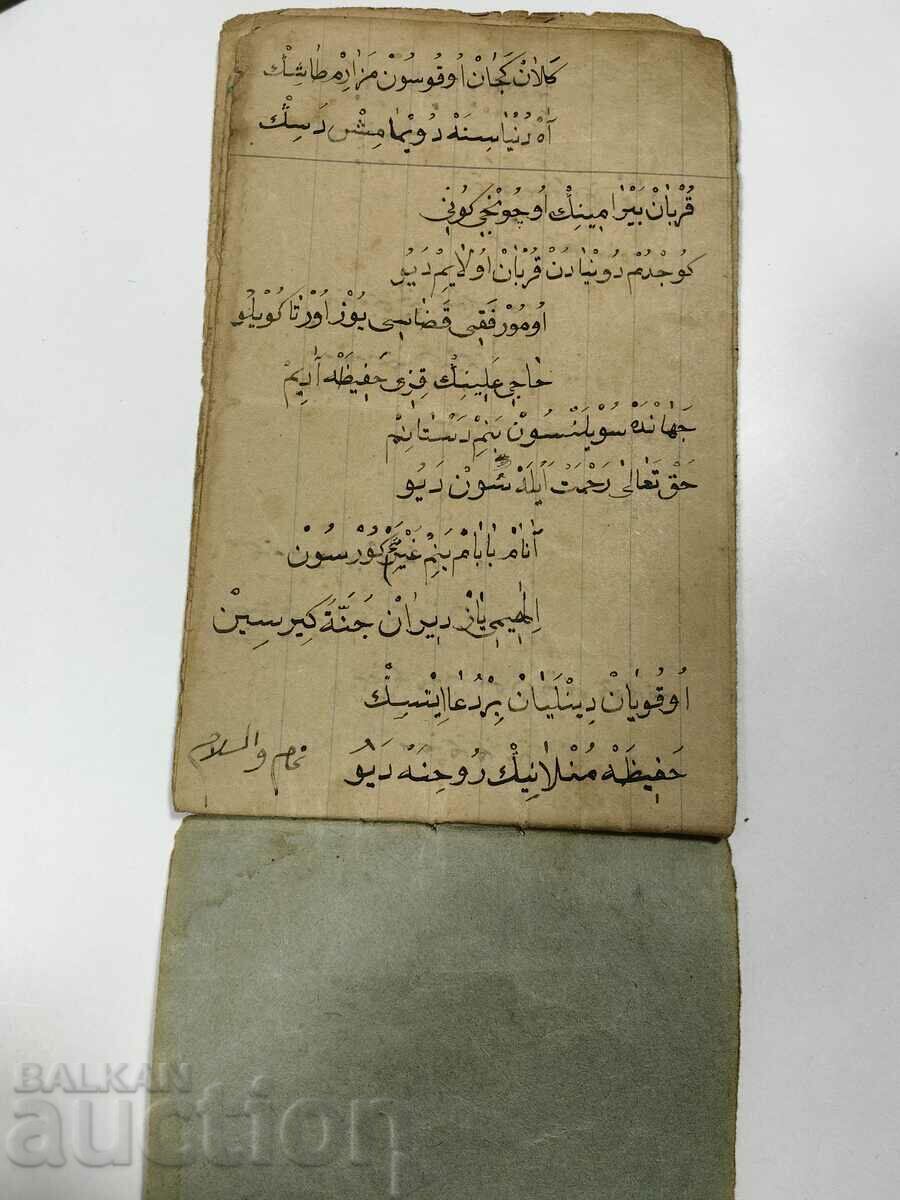 كَلَانْ كَچَانْ اُوقُوسُونْ مَزَارِمْ طَاشِنْكْ
آهْ دُنْيَاسِنَهْ دُويْمَامِشْ دَسِنْكْ
قُرْبَانْ بَيْرَامِينِكْ اُوچُونْجِي كُونِي
كُوچْدُمْ دُونْيَادَنْ قُرْبَانْ اُولَايِمْ دَيُو
اُومُورْفَقِي قَضَاسِي يُوزْ اُورْتَا كُويْلُو
حَاجِي عَلِينِكْ قِزِي حَفِيظَه آدِيمْ
جَهَانْدَهْ سُويْلَنْسُونْ بَنِمْ دَسْتَانِمْ
حَقْ تَعَالَى رَحْمَتْ اَيْلَهْ سُونْ دَيُو
آنَامْ بَابَامْ بَنِمْ كُورْسُونْ
اِلَهِيمِي يَازْدِيرَانْ جَنَّةَ كِيرْسِينْ
اُوقُويَانْ دِينْلَيَانْ بِرْدُعَا اِيتْسِنْكْ
حَفِيظَه مُنْلَانِيكْ رُوحِنَهْ دَيُو
تمام والسلام
BALKAN
auction